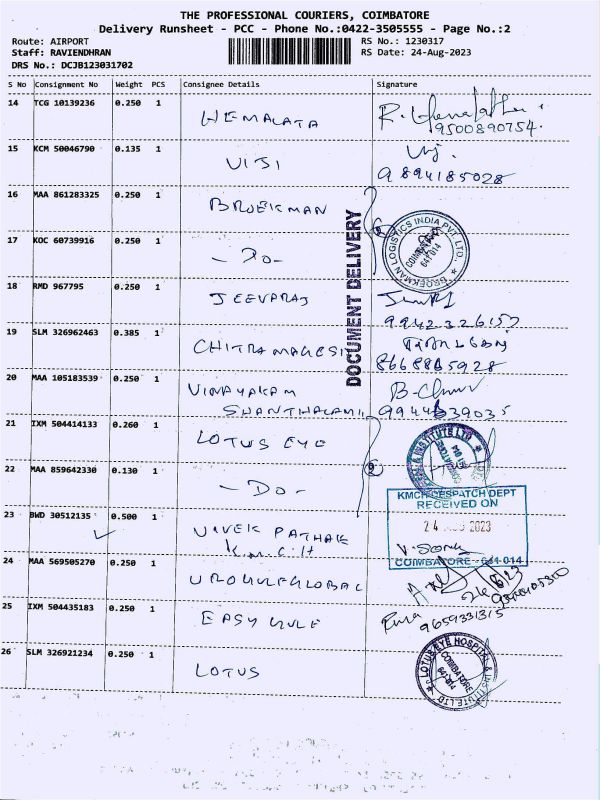 THE PROFESSIONAL COURIERS, COIMBATORE
Delivery Runsheet - PCC - Phone No.:0422-3505555 - Page No.:2
Route: AIRPORT
RS No.: 1230317
Staff: RAVIENDHRAN
RS Date: 24-Aug-2023
DRS No.: DCJB123031702
S No Consignment No Weight PCS Consignee Details Signature
14 TCG 10139236 0.250 1 HEMALATA
9500890754.
15 KCM 50046790 0.135 1 VIJI
9894185028
16 MAA 861283325 0.250 1 BROEKMAN
DOCUMENT DELIVERY
BROEKMAN LOGISTICS INDIA PVT. LTD.
COIMBATORE
641 014
17 KOC 60739916 0.250 1 - Do -
18 RMD 967795 0.250 1 JEEVARAJ
9942326157
19 SLM 326962463 0.385 1 CHITRAMAHESI
8668865928
20 MAA 105183539 0.250 1 VINAYAKAM
SHANTHALAMII
21 IXM 504414133 0.260 1 LOTUS EYE
22 MAA 859642330 0.130 1 - Do -
KMCH DESPATCH DEPT
RECEIVED ON
24 2023
COIMBATORE - 641 014
23 BWD 30512135 0.500 1 VIVEK PATHAK
K.M.C.H
24 MAA 569505270 0.250 1 UROHULFGLOBAL
25 IXM 504435183 0.250 1 EASY
9659331315
26 SLM 326921234 0.250 1 LOTUS
LOTUS EYE HOSPITAL & INSTITUTE LTD
COIMBATORE
641 014